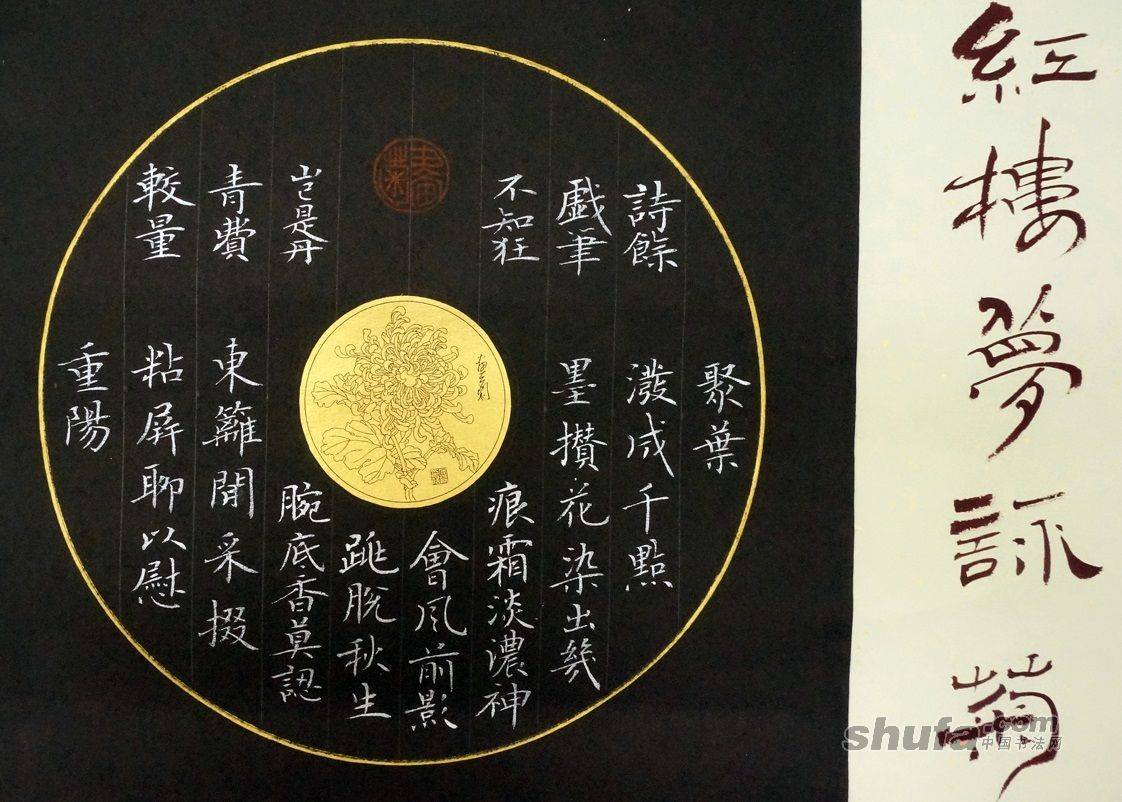 紅樓夢詠菊
詩餘
戲筆
不知狂
岂是丹
青費
較量
聚葉
潑成千點
墨攢花染出幾
痕霜淡濃神
會風前影
跳脫秋生
腕底香莫認
東籬閒采掇
粘屏聊以慰
重陽
shufa.com
中国书法网